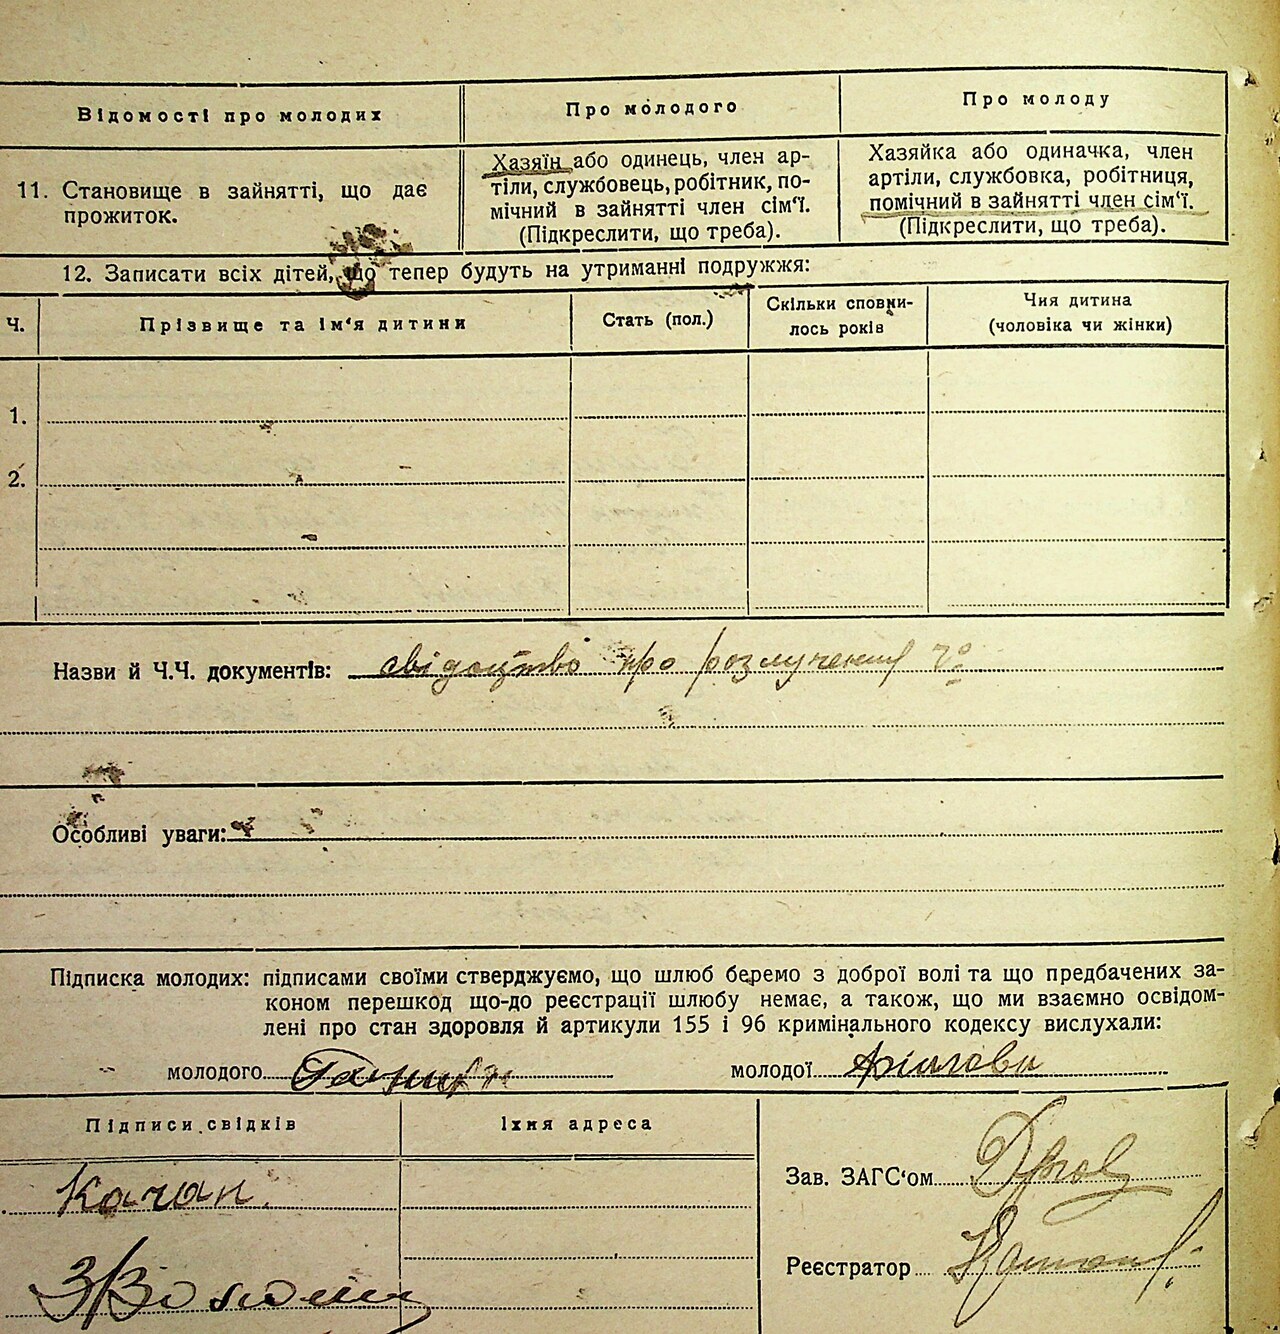 Відомості про молодих
Про молодого
Про молоду
11. Становище в зайнятті, що дає
прожиток.
Хазяїн або одинець, член ар-
тіли, службовець, робітник, по-
мічний в зайнятті член сім'ї.
(Підкреслити, що треба).
Хазяйка або одиначка, член
артіли, службовка, робітниця,
помічний в зайнятті член сім'ї.
(Підкреслити, що треба).
12. Записати всіх дітей, що тепер будуть на утриманні подружжя:
Ч.
Прізвище та ім'я дитини
Стать (пол.)
Скільки сповни-
лось років
Чия дитина
(чоловіка чи жінки)
1.
2.
Назви й Ч.Ч. документів: свідоцтво про розлучення
Особливі уваги:
Підписка молодих: підписами своїми стверджуємо, що шлюб беремо з доброї волі та що предбачених за-
коном перешкод що-до реєстрації шлюбу немає, а також, що ми взаємно освідом-
лені про стан здоровля й артикули 155 і 96 кримінального кодексу вислухали:
молодого
молодої
Підписи свідків
Їхня адреса
Качан
Зав. ЗАГС'ом
Реєстратор